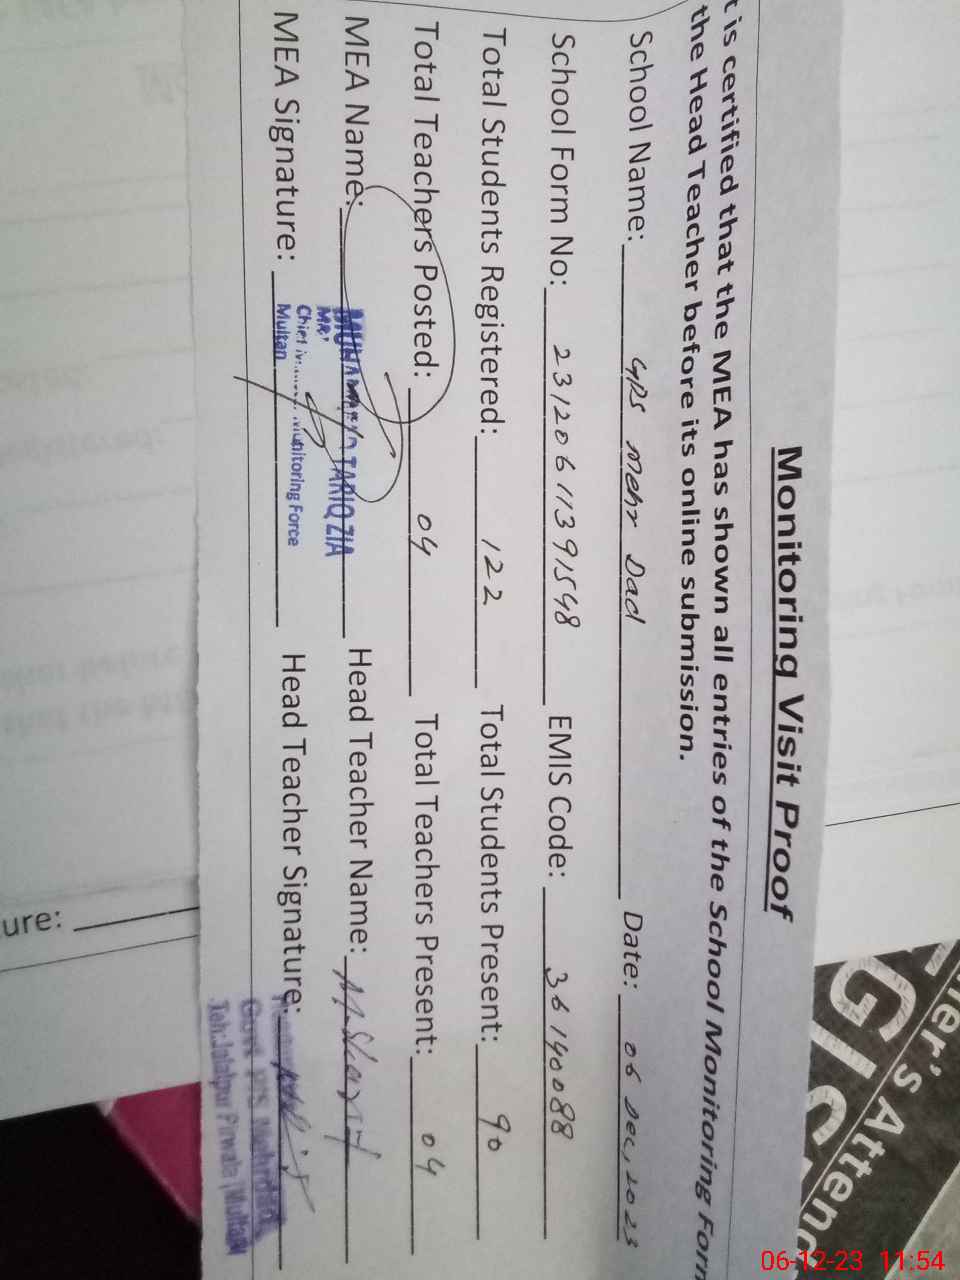 Monitoring Visit Proof
t is certified that the MEA has shown all entries of the School Monitoring Form
the Head Teacher before its online submission.
School Name: GPS Mehr Dad Date: 06 Dec, 2023
School Form No: 23120611391548 EMIS Code: 36140088
Total Students Registered: 122 Total Students Present: 90
Total Teachers Posted: 04 Total Teachers Present: 04
MEA Name: TARIQ ZIA Head Teacher Name:
MEA Signature: Head Teacher Signature:
Chief Monitoring Force
Multan
Govt
Teh: Jalalpur Pirwala, Multan
ure:
er's Atten
06-12-23 11:54